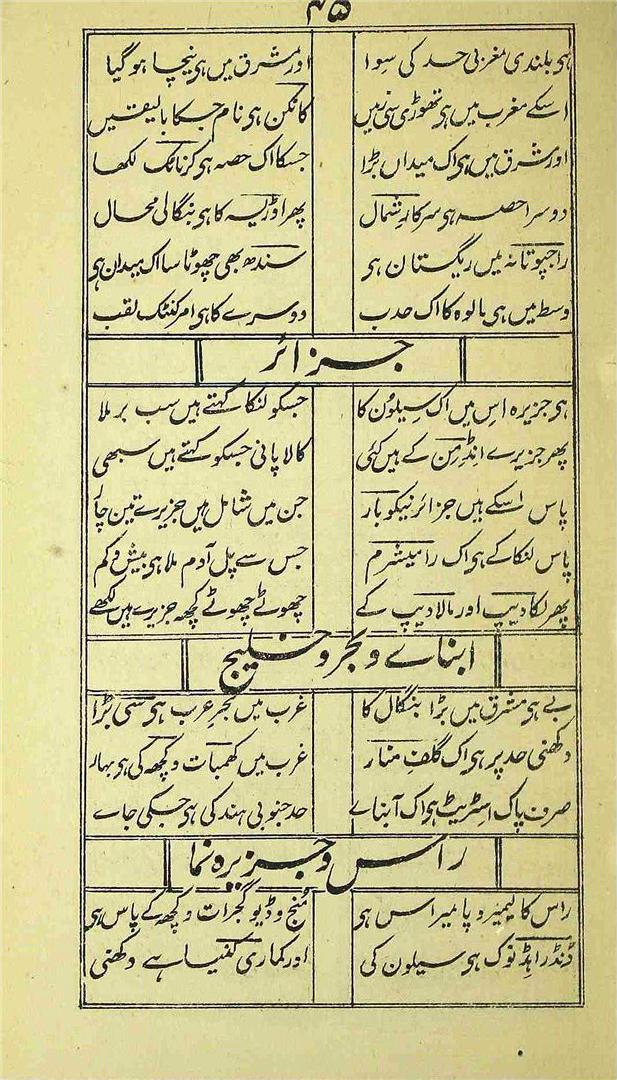 ۴۵
ہی بلندی مغربی حد کی سوا اور مشرق میں ہی نیچا ہوگیا
اسکے مغرب میں ہی تھوڑی سی زمیں کانکن ہی نام جسکا بالیقیں
اور مشرق میں ہی اک میداں بڑا جسکا اک حصہ ہی کرناٹک لکھا
دوسرا حصہ ہی سرکار شمال پھر اوڑیسہ کا ہی بنگالی محال
راجپوتانہ میں ریگستان ہی سندھ بھی چھوٹا سا اک میدان ہی
وسط میں ہی مالوہ کا اک حدب دوسرے کا ہی امرکنٹک لقب
جزائر
ہی جزیرہ اس میں اک سیلون کا جسکو لنکا کہتے ہیں سب بر ملا
پھر جزیرے انڈمن کے ہیں کئی کالا پانی جسکو کہتے ہیں سبھی
پاس اسکے ہیں جزائر نیکوبار جن میں شامل ہیں جزیرے تین چار
پاس لنکا کے ہی اک رامیشرم جس سے پل آدم ملا ہی بیش و کم
پھر لکادیپ اور مالادیپ کے چھوٹے چھوٹے کچھ جزیرے ہیں لکھے
ابناے و بحر و خلیج
بے ہی مشرق میں بڑا بنگال کا غرب میں بحر عرب ہی سی بڑا
دکھنی حد پر ہی اک گلف منار غرب میں کھمبات و کچھ کی ہی بہار
صرف پاک اسٹریٹ ہی اک آبناے حد جنوبی ہند کی ہی جسکی جاے
راس و جزیرہ نما
راس کالیمیر و پامیراس ہی منج و ڈیو گجرات و کچھ کے پاس ہی
ڈنڈراہڈ نوک ہی سیلون کی اور کماری کنیا ہے دکھنی